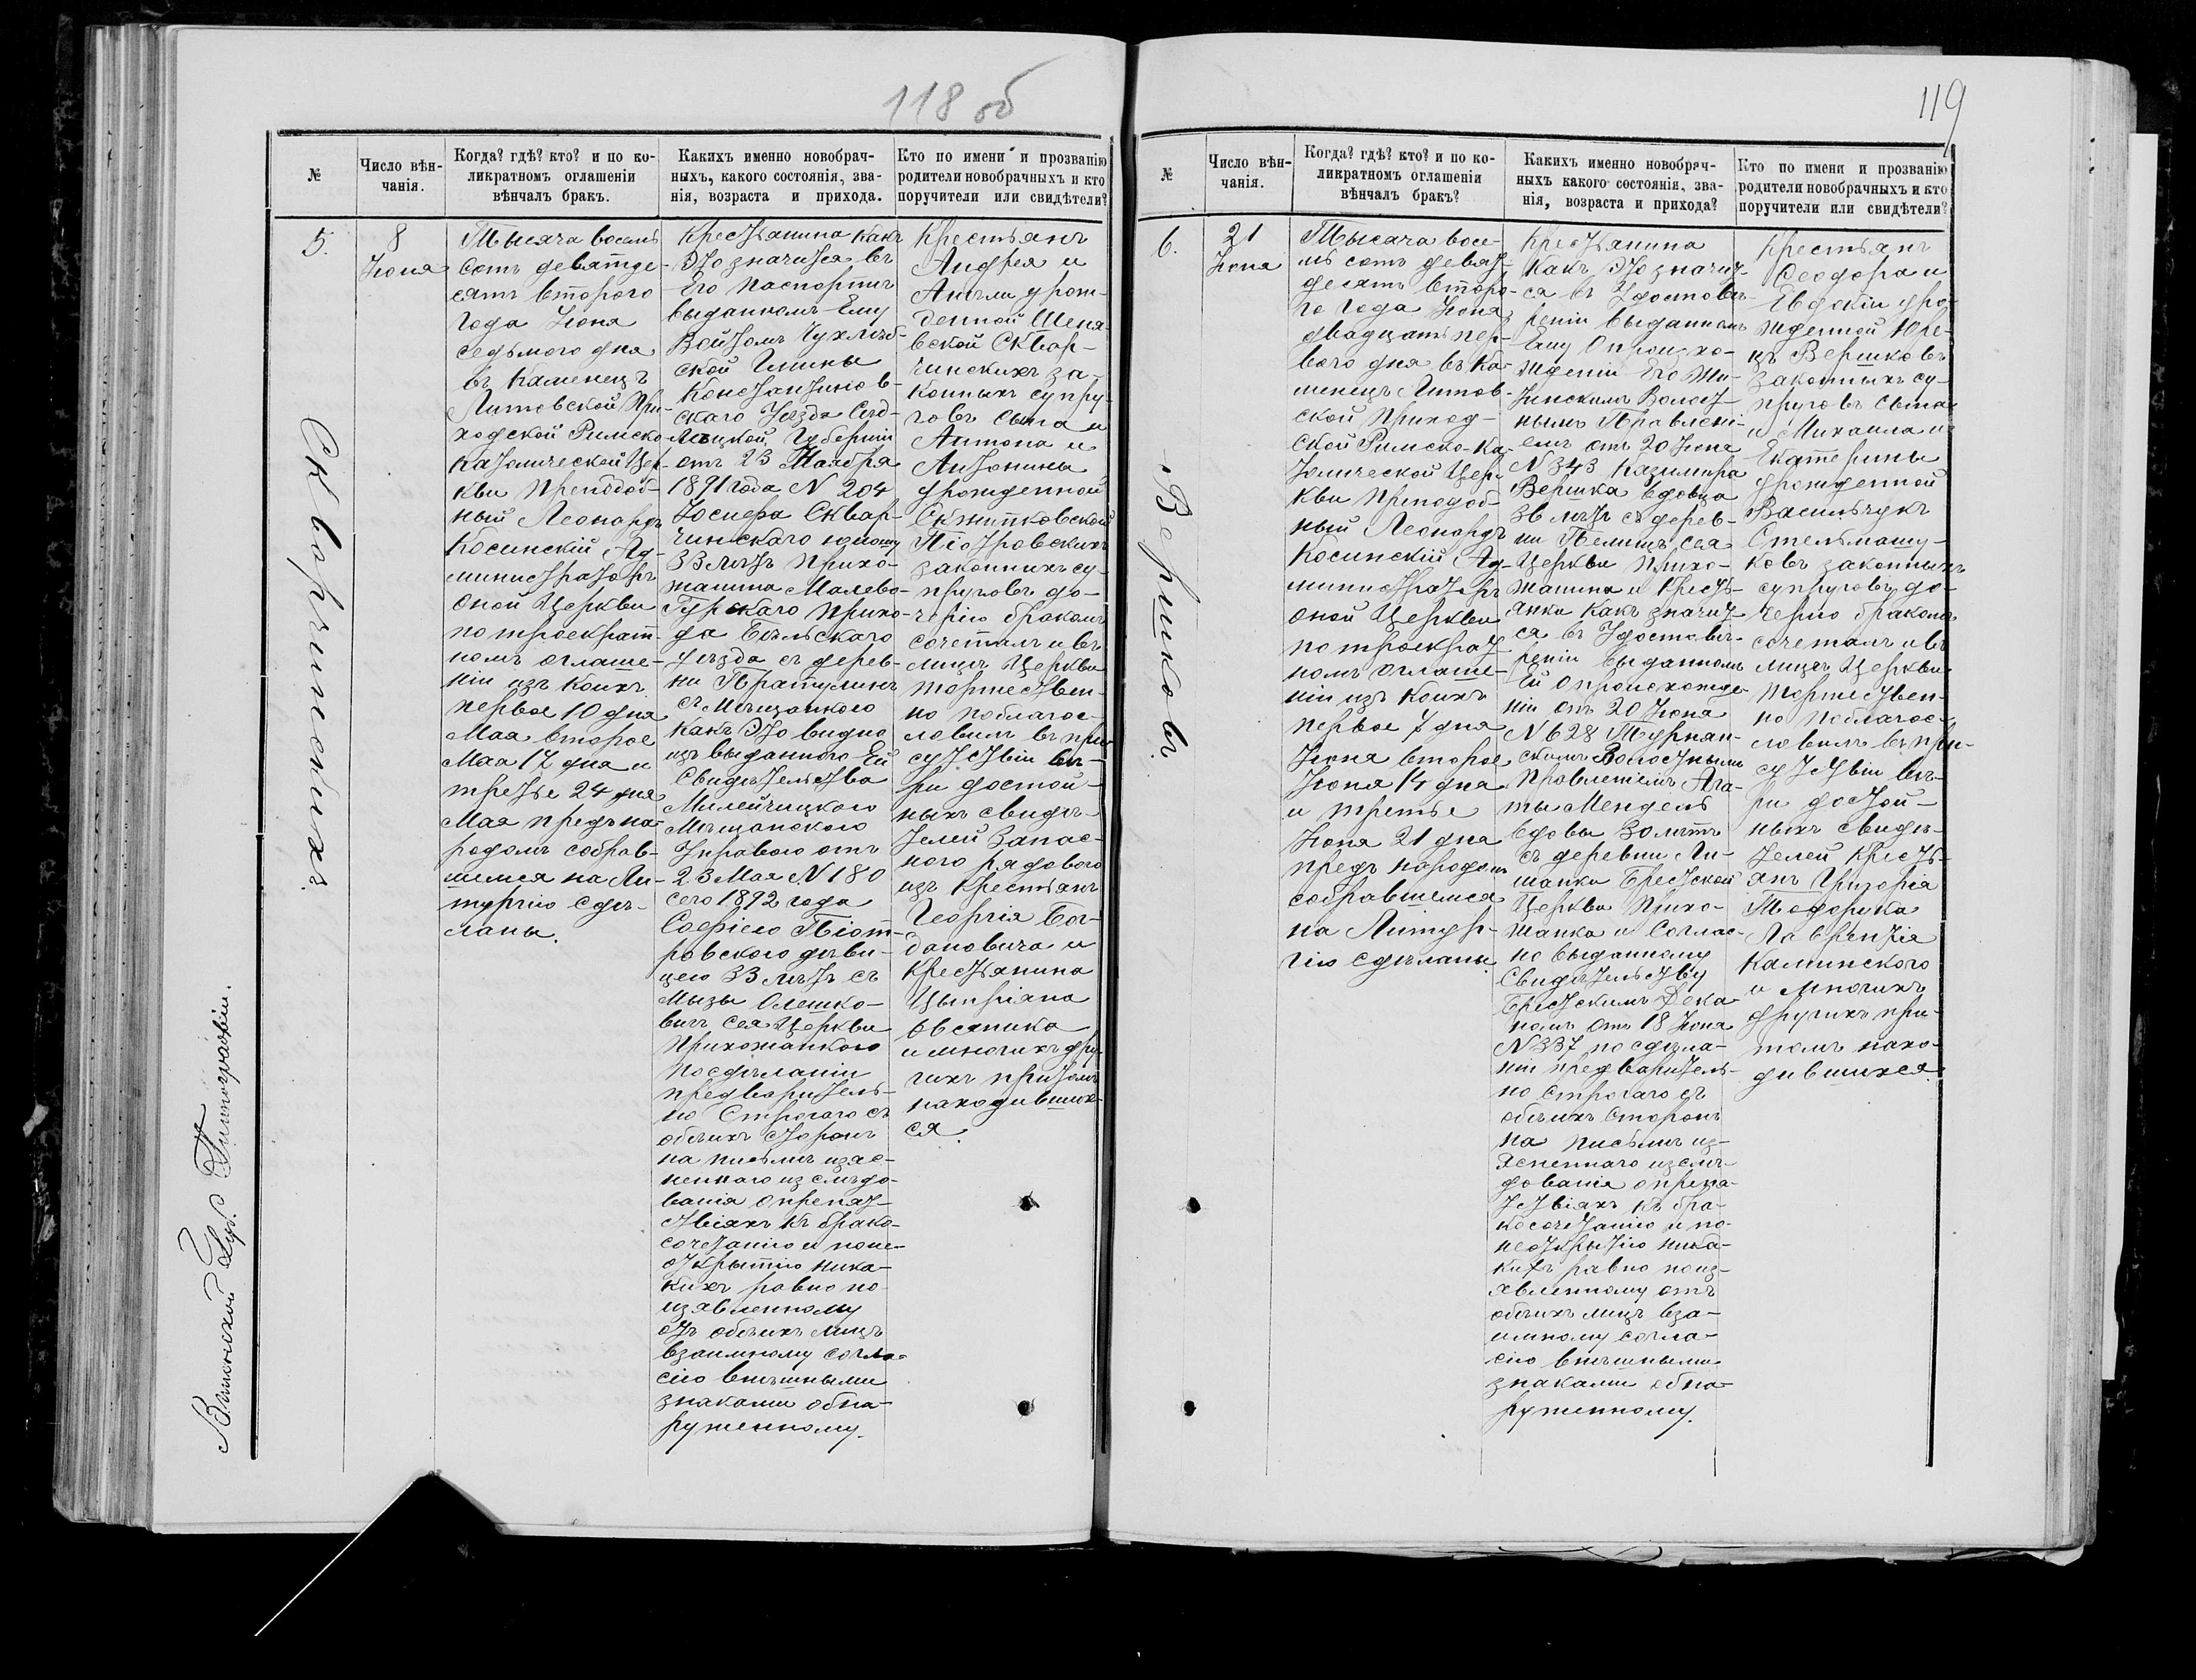 118 об
№
Число вѣн-
чанія.
Когда? гдѣ? кто? и по ко-
ликратномъ оглашеніи
вѣнчалъ бракъ.
Какихъ именно новобрач-
ныхъ, какого состоянія, зва-
нія, возраста и прихода.
Кто по имени и прозванію
родители новобрачныхъ и кто
поручители или свидѣтели?
5.
Скварчинскихъ
8
Іюня
Тысяча восемь
сотъ девятде-
сятъ второго
года Іюня
седьмого дня
въ Каменецъ
Литовской При-
ходской Римско
Католической Цер-
кви Преподоб-
ный Леонардъ
Косинскій Ад-
министраторъ
оной Церкви
по троекрат-
номъ оглаше-
ніи изъ коихъ
первое 10 дня
Мая второе
Мая 17 дня и
третье 24 дня
Мая предъ на-
родомъ собрав-
шемся на Ли-
тургію сдѣ-
ланы.
Крестьянина какъ
это значится въ
Его Паспортѣ
выданномъ Ему
Войтомъ Чухлѣб-
ской Гмины
Константинов-
скаго Уѣзда Сѣд-
лецкой Губерніи
отъ 23 Ноября
1891 года N 204
Іосифа Сквар-
чинскаго юношу
33 лѣтъ Прихо-
жанина Малево-
Гурскаго Прихо-
да Бѣльскаго
Уѣзда съ дерев-
ни Пратулинъ
съ Мѣщанкою
какъ это видно
изъ выданного Ей
Свидѣтельства
Милейчицкою
Мѣщанскою
Управою отъ
23 Мая N 180
сего 1892 года
Софіею Піот-
ровскою дѣви-
цею 33 лѣтъ съ
Мызы Олешко-
вичъ сея Церкви
Прихожанкою
по сдѣланіи
предваритель-
но Строгаго съ
обѣихъ сторонъ
на письмѣ изяс-
неннаго изслѣдо-
ванія о препят-
ствіяхъ къ брако-
сочетанію и по не-
открытію ника-
кихъ равно по
изявленному
отъ обѣихъ лицъ
взаимному согла-
сію внѣшными
знаками обна-
руженному.
Крестьянъ
Андрея и
Анѣли урож-
денной Шеня-
вской Сквар-
чинскихъ за-
конныхъ супру-
говъ сына и
Антона и
Антонины
урожденной
Скжипковской
Піотровскихъ
законныхъ су-
пруговъ до-
черію бракомъ
сочеталъ и въ
лицѣ Церкви
торжествен-
но поблагос-
ловилъ въ при-
сутствіи вѣ-
ры достой-
ныхъ свидѣ-
телей Запас-
ного рядового
изъ Крестьянъ
Георгія Бог-
дановича и
Крестьянина
Цыпріана
Овсяника
и многихъ дру-
гихъ притомъ
находивших-
ся.
Виленской Губ. Типографіи.
119
№
Число вѣн-
чанія.
Когда? гдѣ? кто? и по ко-
ликратномъ оглашеніи
вѣнчалъ бракъ?
Какихъ именно новобрач-
ныхъ какого состоянія, зва-
нія, возраста и прихода?
Кто по имени и прозванію
родители новобрачныхъ и кто
поручители или свидѣтели?
6.
Вершковъ
21
Іюня
Тысяча восе-
мь сотъ девят-
десятъ второ-
го года Іюня
двадцать пер-
вого дня въ Ка-
менецъ Литов-
ской Приход-
ской Римско-Ка-
толической Цер-
кви Преподоб-
ный Леонардъ
Косинскій Ад-
министраторъ
оной Церкви
по троекрат-
номъ оглаше-
ніи изъ коихъ
первое 7 дня
Іюня второе
Іюня 14 дня
и третье
Іюня 21 дня
предъ народомъ
собравшемся
на Литур-
гію сдѣланы
Крестьянина
какъ это значит-
ся въ Удостовѣ-
реніи выданномъ
Ему о происхо-
жденіи Его Жи-
тинскимъ Волост-
нымъ Правлені-
емъ отъ 20 Іюня
N 343 Казимира
Вершка вдовца
36 лѣтъ съ дерев-
ни Пелищъ сея
Церкви Прихо-
жанина и Кресть-
янки какъ значит-
ся въ Удостовѣ-
реніи выданномъ
Ей о происхожде-
ніи отъ 20 Іюня
N 628 Турнан-
скимъ Волостнымъ
Правленіемъ Ага-
ты Мендель
вдовы 30 лѣтъ
съ деревни Ли-
шанки Брестской
Церкви Прихо-
жанки и Соглас-
но выданному
Свидѣтельству
Брестскимъ Дека-
номъ отъ 18 Іюня
N 337 по сдѣла-
ніи предваритель-
но строгаго съ
обѣихъ сторонъ
на письмѣ из-
ясненнаго изслѣ-
дованія о препя-
тствіяхъ къ бра-
косочетанію и по
неоткрытію ника-
кихъ равно по из-
явленному отъ
обѣихъ лицъ вза-
имному согла-
сію внѣшными
знаками обна-
руженному.
Крестьянъ
Ѳеодора и
Евдокіи уро-
жденной Юре-
цъ Вершковъ
законныхъ су-
пруговъ сына
и Михаила и
Екатерины
урожденной
Васильчукъ
Стельмашу-
ковъ законныхъ
супруговъ до-
черію бракомъ
сочеталъ и въ
лицѣ Церкви
торжествен-
но поблагос-
ловилъ въ при-
сутствіи вѣ-
ры достой-
ныхъ свидѣ-
телей Кресть-
янъ Григорія
Тодорука
Лаврентія
Калинского
и многихъ
другихъ при-
томъ нахо-
дившихся.